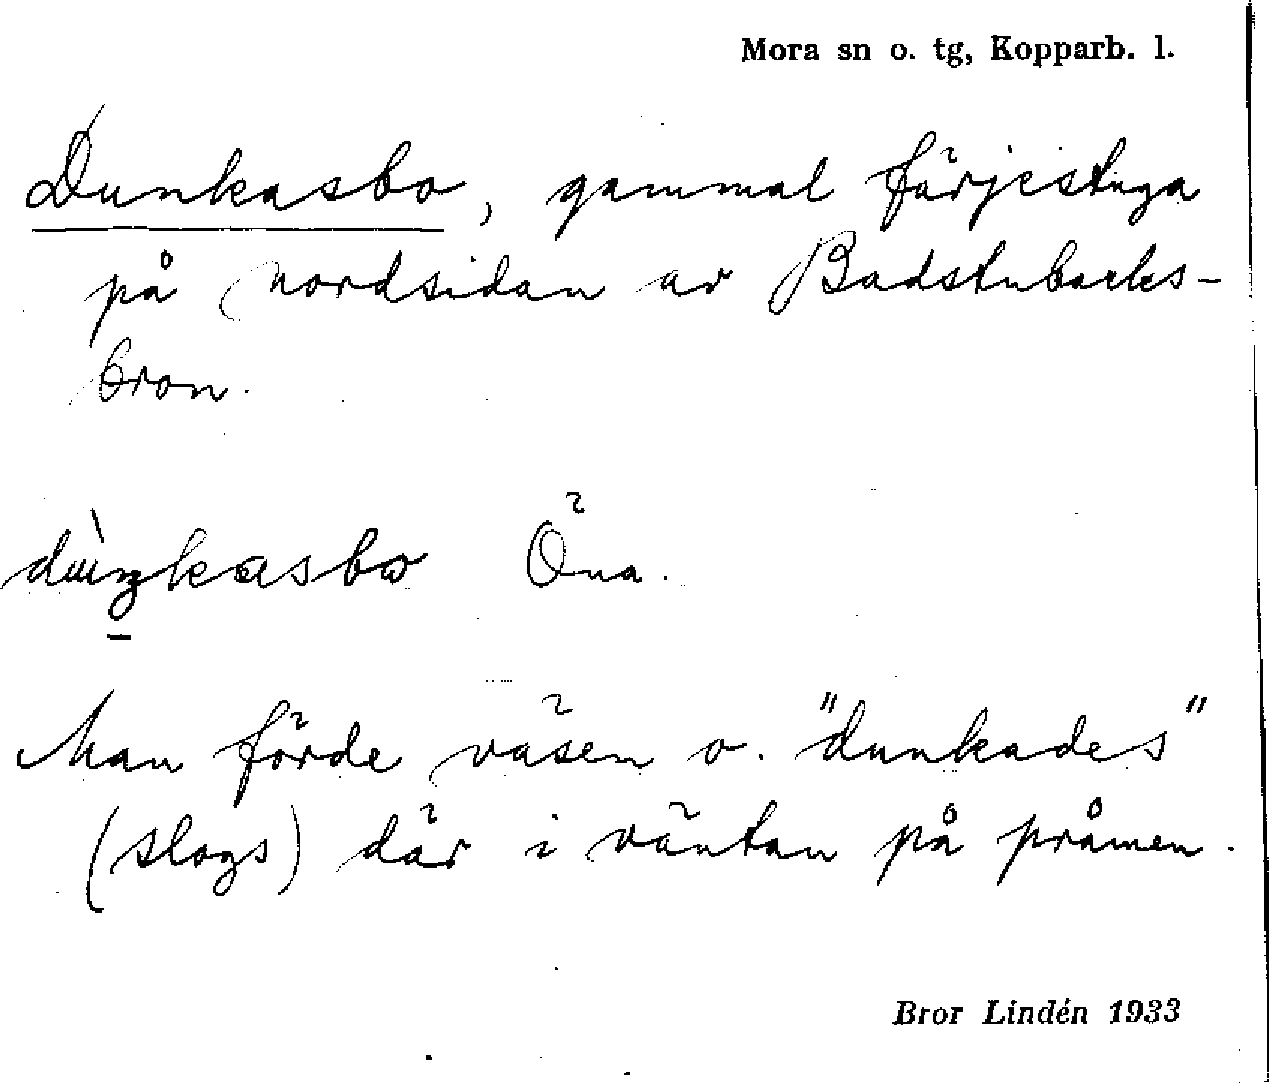 Mora sn o. tg, Kopparb. l.
Dunkasbo, gammal färjestuga
på nordsidan av Badstubacks-
bron.
Öna.
Man förde väsen o. "dunkades"
(slogs) där i väntan på pråmen.
Bror Lindén 1933